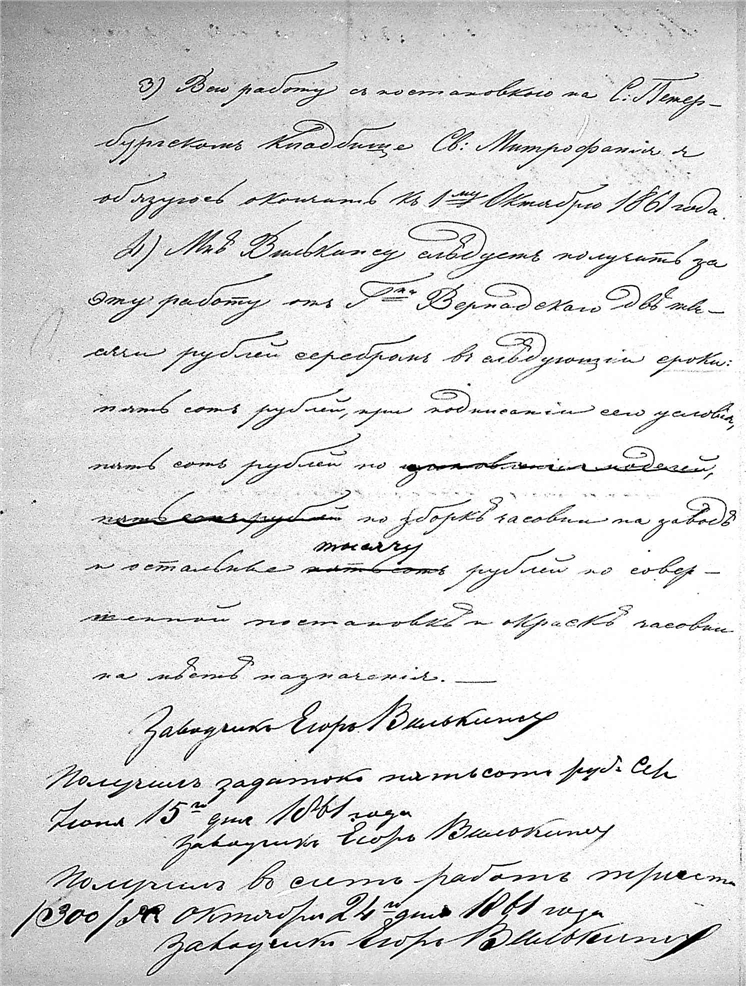 3) Всю работу съ постановкою на С: Петер-
бургскомъ Кладбище Св: Митрофанія я
обязуюсь окончить къ 1му Октября 1861 года.
4) Мнѣ Вилькинсу слѣдуетъ получить за
эту работу отъ Гна Вернадскаго двѣ ты-
сячи рублей серебромъ въ слѣдующіи сроки:
пять сотъ рублей, при подписаніи сего условія,
пять сотъ рублей по изготовленіи моделей,
пять сотъ рублей по зборкѣ часовни на заводѣ
тысячу
и остальные пять сотъ рублей по совер-
шенной постановкѣ и окраскѣ часовни
на мѣстѣ назначенія. —
Заводчикъ Егоръ Вилькинсъ
Получилъ задатокъ пятьсотъ руб. Сер
Іюня 15го дня 1861 года
Заводчикъ Егоръ Вилькинсъ
Получилъ въ счетъ работъ триста
/300/ Октября 24го дня 1861 года
Заводчикъ Егоръ Вилькинсъ